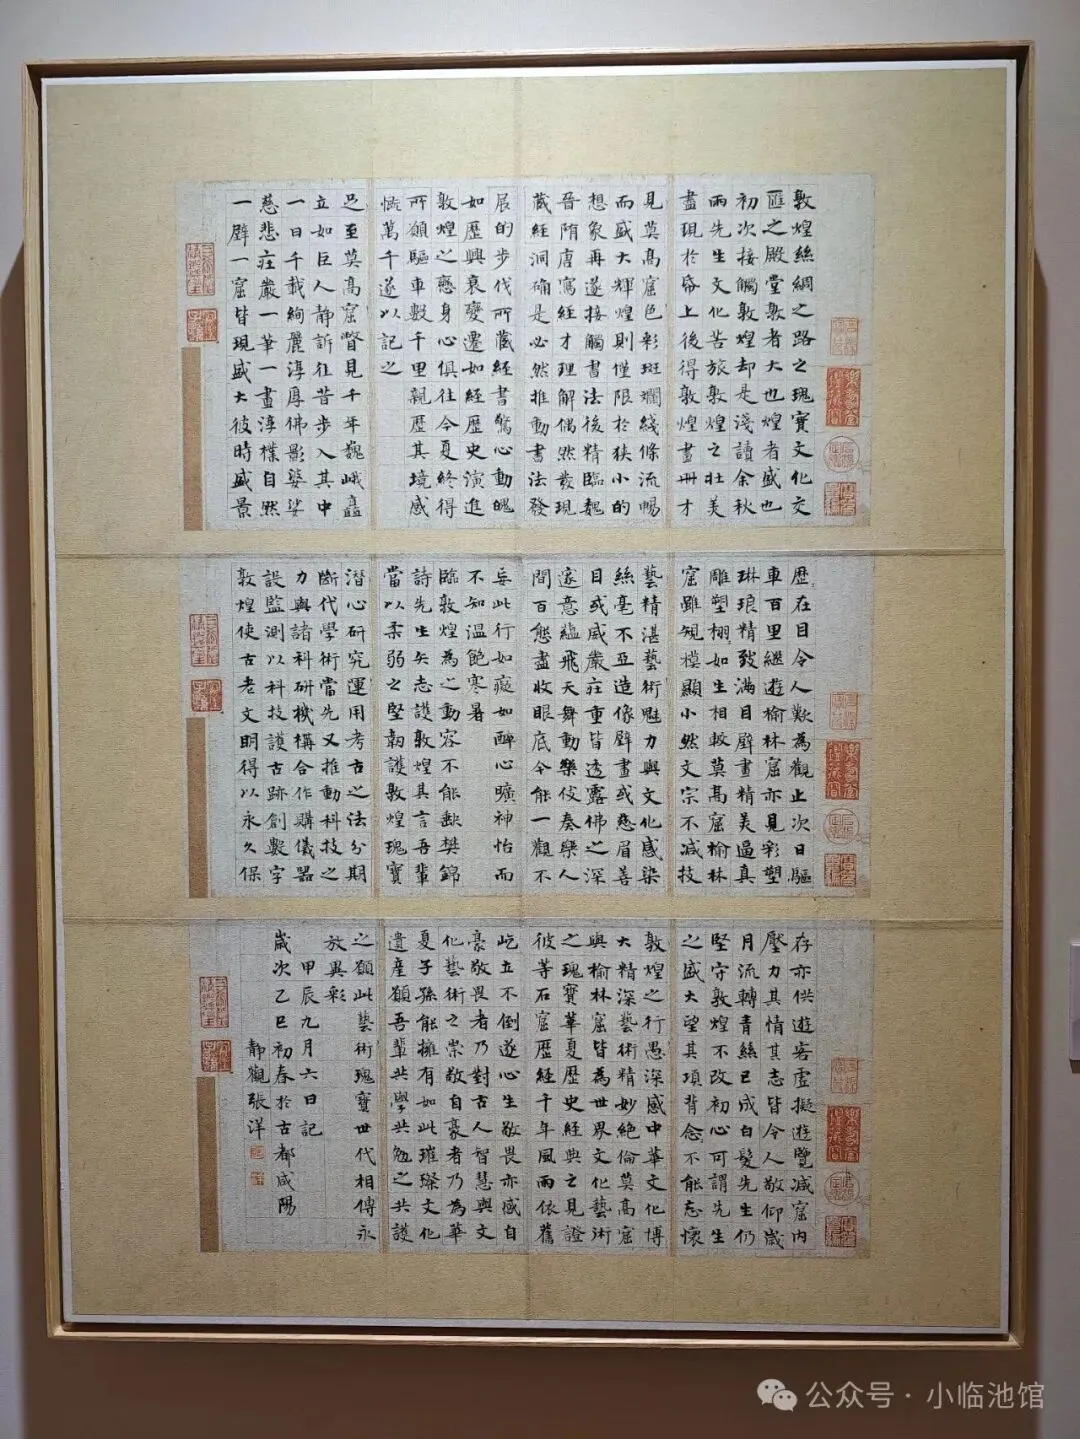 敦煌絲綢之路之瑰寶文化交
匯之殿堂敦者大也煌者盛也
初次接觸敦煌却是淺讀余秋
雨先生文化苦旅敦煌之壯美
盡現於昏上後得敦煌畫冊才
見莫高窟色彩斑斕綫條流暢
而盛大輝煌則僅限於狹小的
想象再遂接觸書法後精臨魏
晉隋唐寫經才理解偶然發現
藏經洞確是必然推動書法發
展的步伐所藏經書驚心動魄
如歷興衰變遷如經歷史演進
敦煌之戀身心俱往今夏終得
所願驅車數千里親歷其境感
慨萬千遂以記之
足至莫高窟瞥見千年巍峨矗
立如巨人静訴往昔步入其中
一日千載絢麗淳厚佛影婆娑
慈悲莊嚴一筆一畫淳樸自然
一壁一窟皆現盛大彼時盛景
歷在目令人歎為觀止次日驅
車百里繼遊榆林窟亦見彩塑
琳琅精致滿目壁畫精美逼真
雕塑栩如生相較莫高窟榆林
窟雖規模顯小然文宗不減技
藝精湛藝術魁力與文化感染
絲毫不亞造像壁畫或慈眉善
目或威嚴莊重皆透露佛之深
邃意蘊飛天舞動樂伎奏樂人
間百態盡收眼底今能一觀不
妄此行如癡如醉心曠神怡而
不知溫飽寒暑
臨敦煌為之動容不能歔樊錦
詩先生矢志護敦煌其言吾輩
當以柔弱之堅韌護敦煌瑰寶
潛心研究運用考古之法分期
斷代學術當先又推動科技之
力與諸科研機構合作購儀器
設監測以科技護古跡創數字
敦煌使古老文明得以永久保
存亦供遊客虛擬遊覽減窟内
壓力其情其志皆令人敬仰歲
月流轉青絲已成白髮先生仍
堅守敦煌不改初心可謂先生
之盛大望其項背念不能忘懷
敦煌之行愚深感中華文化博
大精深藝術精妙絕倫莫高窟
與榆林窟皆為世界文化藝術
之瑰寶華夏歷史經典之見證
彼等石窟歷經千年風雨依舊
屹立不倒遂心生敬畏亦感自
豪敬畏者乃對古人智慧與文
化藝術之崇敬自豪者乃為華
夏子孫能擁有如此璀璨文化
遺産願吾輩共學共勉之共護
之願此藝術瑰寶世代相傳永
放異彩
甲辰九月六日記
歲次乙巳初春於古都咸陽
靜觀張洋
公众号·小临池馆